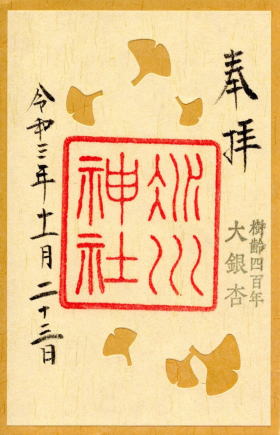 奉拝
樹齢四百年
大銀杏
氷川
神社
令和三年十一月二十三日